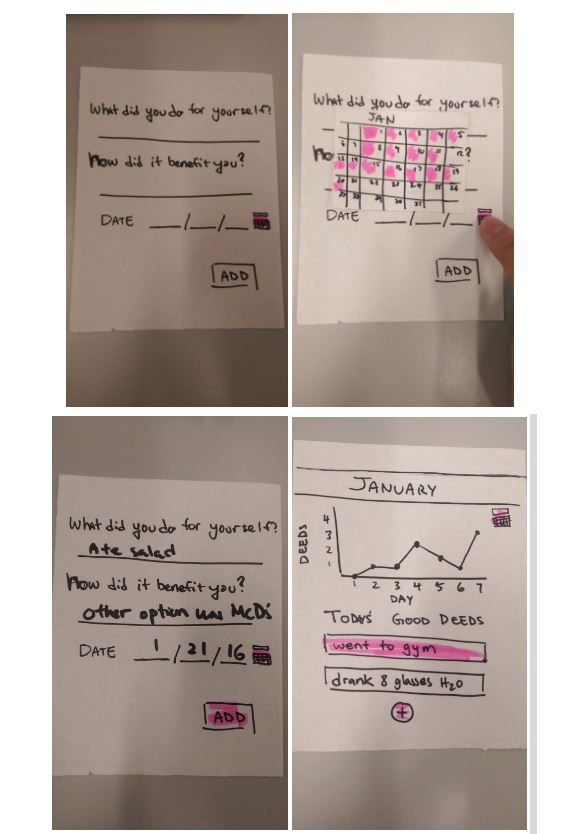 What did you do for yourself?
How did it benefit you?
DATE __/__/__
ADD
What did you do for yourself?
JAN
1 2 3 4 5
6 7 8 9 10 11 12
Ho ?
15 17 19
20 21 22 23 24 25 26
29 30 31
DATE __/__/__
ADD
What did you do for yourself?
Ate salad
How did it benefit you?
other option was McD's
DATE 1/21/16
ADD
JANUARY
DEEDS
4
3
2
1
1 2 3 4 5 6 7
DAY
TODAY'S GOOD DEEDS
went to gym
drank 8 glasses H₂O
+